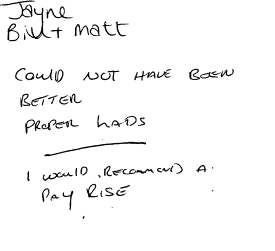 Jayne
Bill + Matt
COULD NOT HAVE BEEN
BETTER
PROPER LADS
I WOULD RECOMMEND A
PAY RISE